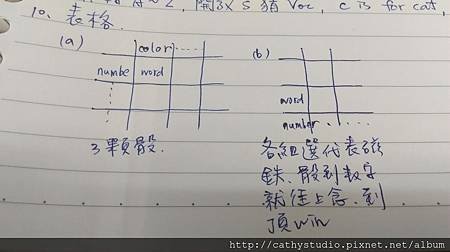 開3x5豬 voc, c is for cat,
10. 表格.
(a)
color
numbe word
3顆骰.
(b)
word
number
各組選代表磁
鉄、骰到数字
就往上念、到
頂win
http://cathystudio.pixnet.net/album